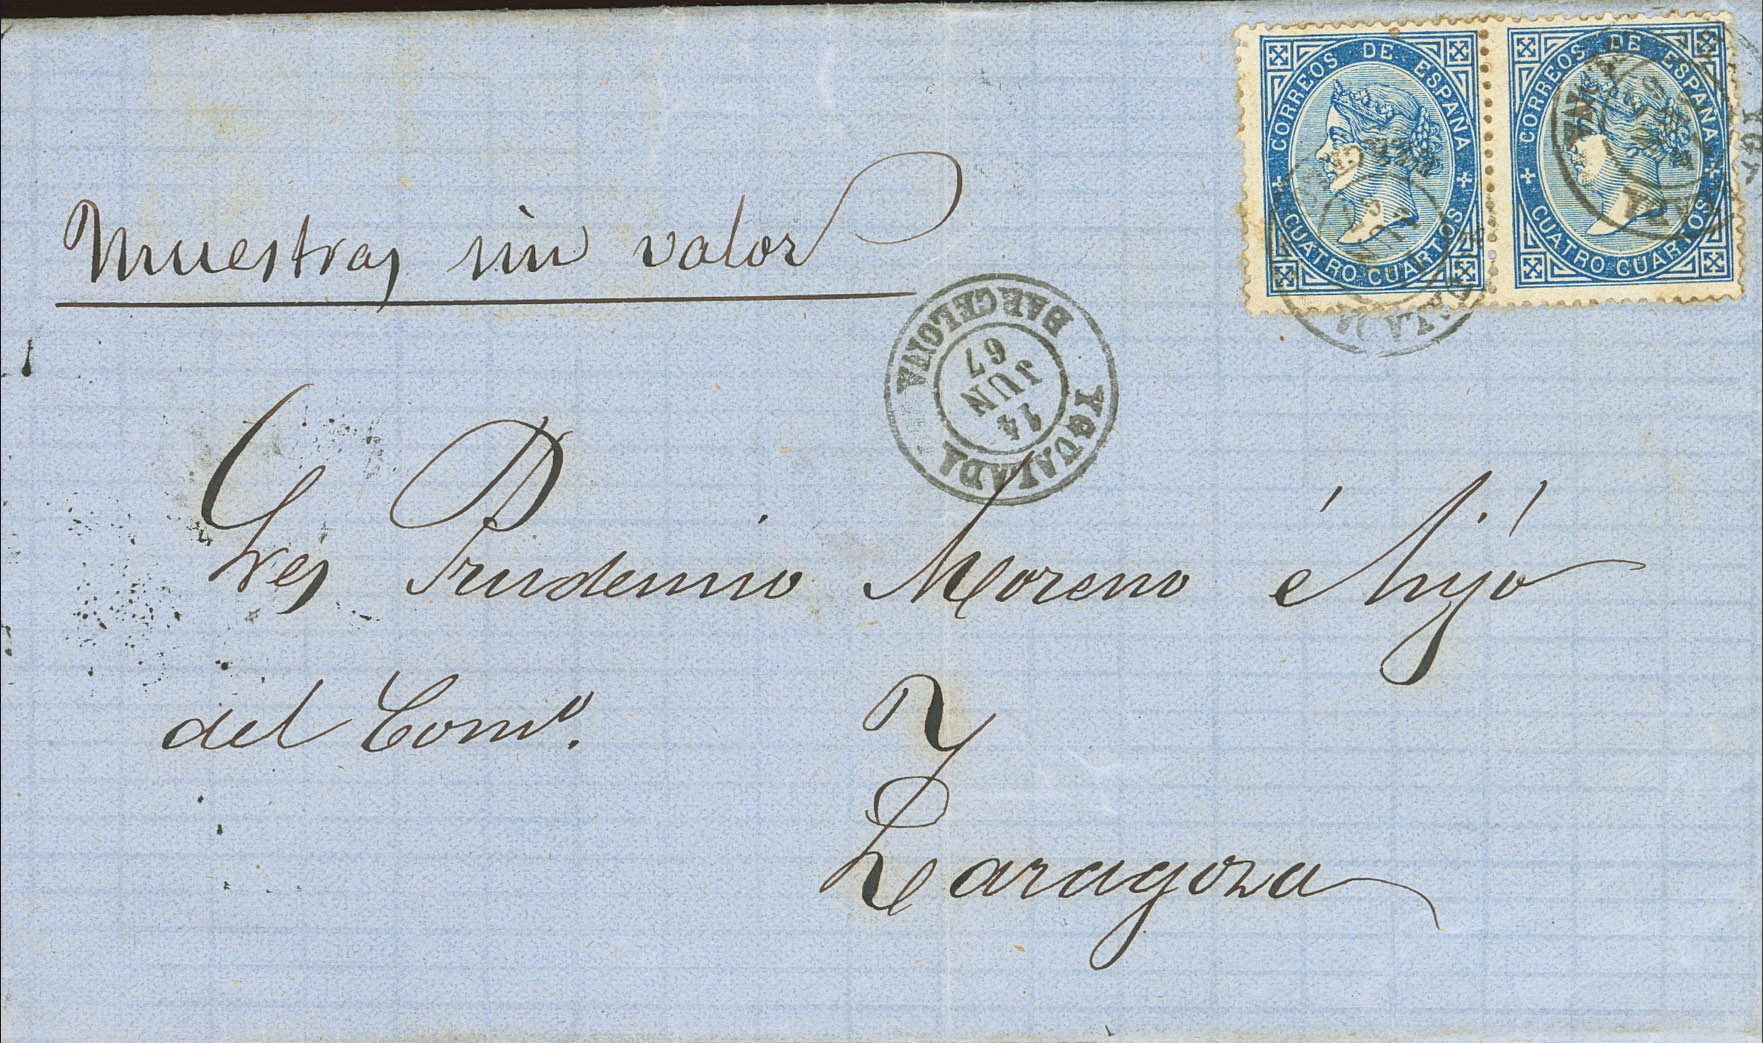 CORREOS DE ESPAÑA
CUATRO CUARTOS
CORREOS DE ESPAÑA
CUATRO CUARTOS
Muestras sin valor
YGUALADA
BARCELONA
14
JUN
67
Sres Prudencio Moreno é hijo
del Comº.
Zaragoza